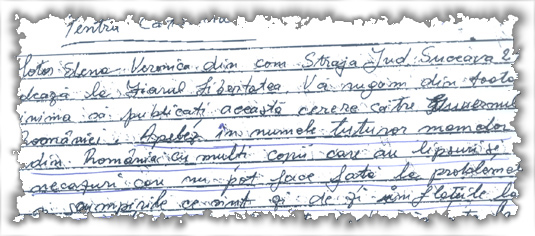 Pentru
Elena Veronica din com Straja Jud Suceava
la Ziarul Libertatea. Vă rugăm din toată
inima să publicați această cerere către Guvernul
României. Apelez în numele tuturor mamelor
din România cu mulți copii care au lipsuri și
necazuri care nu pot face față la problemele
și scumpirile ce sînt zi de zi